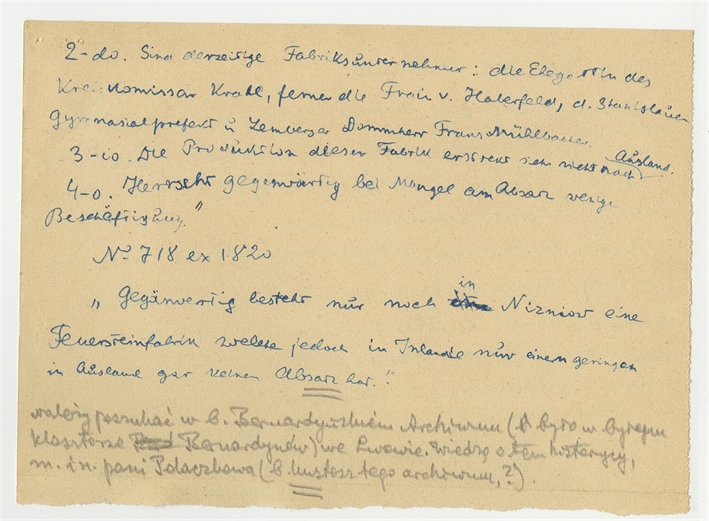 2-do. Sind derzeitige Fabriksunternehmer: die Ehegattin des
Kreiskomissar Kratl, ferner die Frau v. Haberfeld, d. Stanislauer
Gymnasialprefekt u Lemberger Dommherr Franz Mühlbacher.
3-io. Die Produktion dieser Fabrik erstrekt sich nicht nach Ausland.
4-o. Herrscht gegenwärtig bei Mangel am Absatz wenige
Beschäftigung."
No 718 ex 1820
„Gegänwertig besteht nur noch in Nizniow eine
Feuersteinfabrik welche jedoch in Inlande nur einem geringen
in Ausland gar keinen Absatz hat."
należy poszukać w b. Bernardyńskiem Archiwum (było w byłym
klasztorze Bernardynów) we Lwowie. Wiedzą o tem historycy,
m. in. pani Polaczkowa (b. kustosz tego archiwum,?).